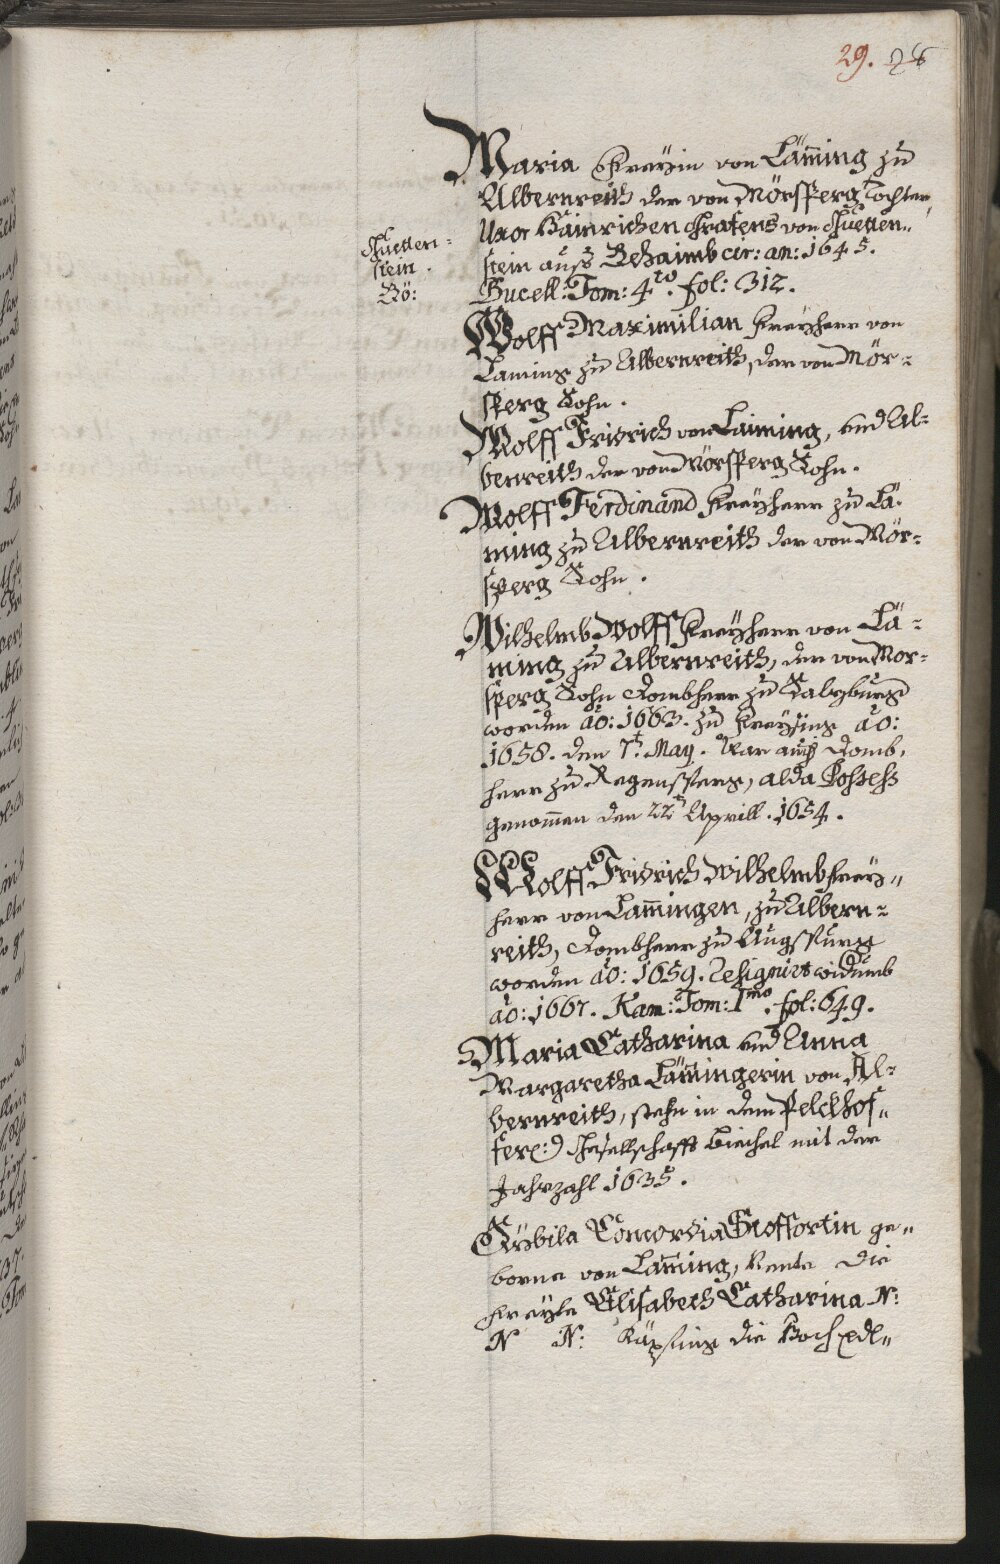 29. 28
Maria Freyin von Läming zu
Albernreith der von Mörsperg Tochter
Uxor Hainrichen Grafens von Guetten„
stein auß Behaimb cir: an: 1645.
Bucell: Tom: 4to. fol: 312.
Guetten=
stein.
Bö:
Wolff Maximilian Freyherr von
Laming zu Albernreith, der von Mör=
sperg Sohn.
Wolff Fridrich von Laiming, und Al=
benreith der von Mörsperg Sohn.
Wolff Ferdinand Freyherr zu Lä=
ming zu Albernreith der von Mör=
sperg Sohn.
Wilhelmb Wolff Freyherr von Lä=
ming zu Albernreith, der von Mor=
sperg Sohn Dombherr zu Salzburg
worden ao: 1663. zu Freysing ao:
1658. den 7t. May. War auch Domb,
herr zu Regensperg, alda Possess
genom̄en den 22t Aprill. 1654.
Wolff Fridrich Wilhelmb Frey„
herr von Lam̄ingen, zu Albern=
reith, Dombherr zu Augspurg
worden ao: 1659. Resignirt widumb
ao: 1667. Kam: Tom: Imo. fol: 649.
Maria Catharina und Anna
Margaretha Lämingerin von Al=
bernreith, stehn in dem Pelckhof„
Gesellschafft Biechel mit der
Jahrzahl 1635.
Sybila Concordia Gioffortin ge„
borne von Läming, nente die
Freyle Elisabeth Catharina N:
N N: die Hoch edl„